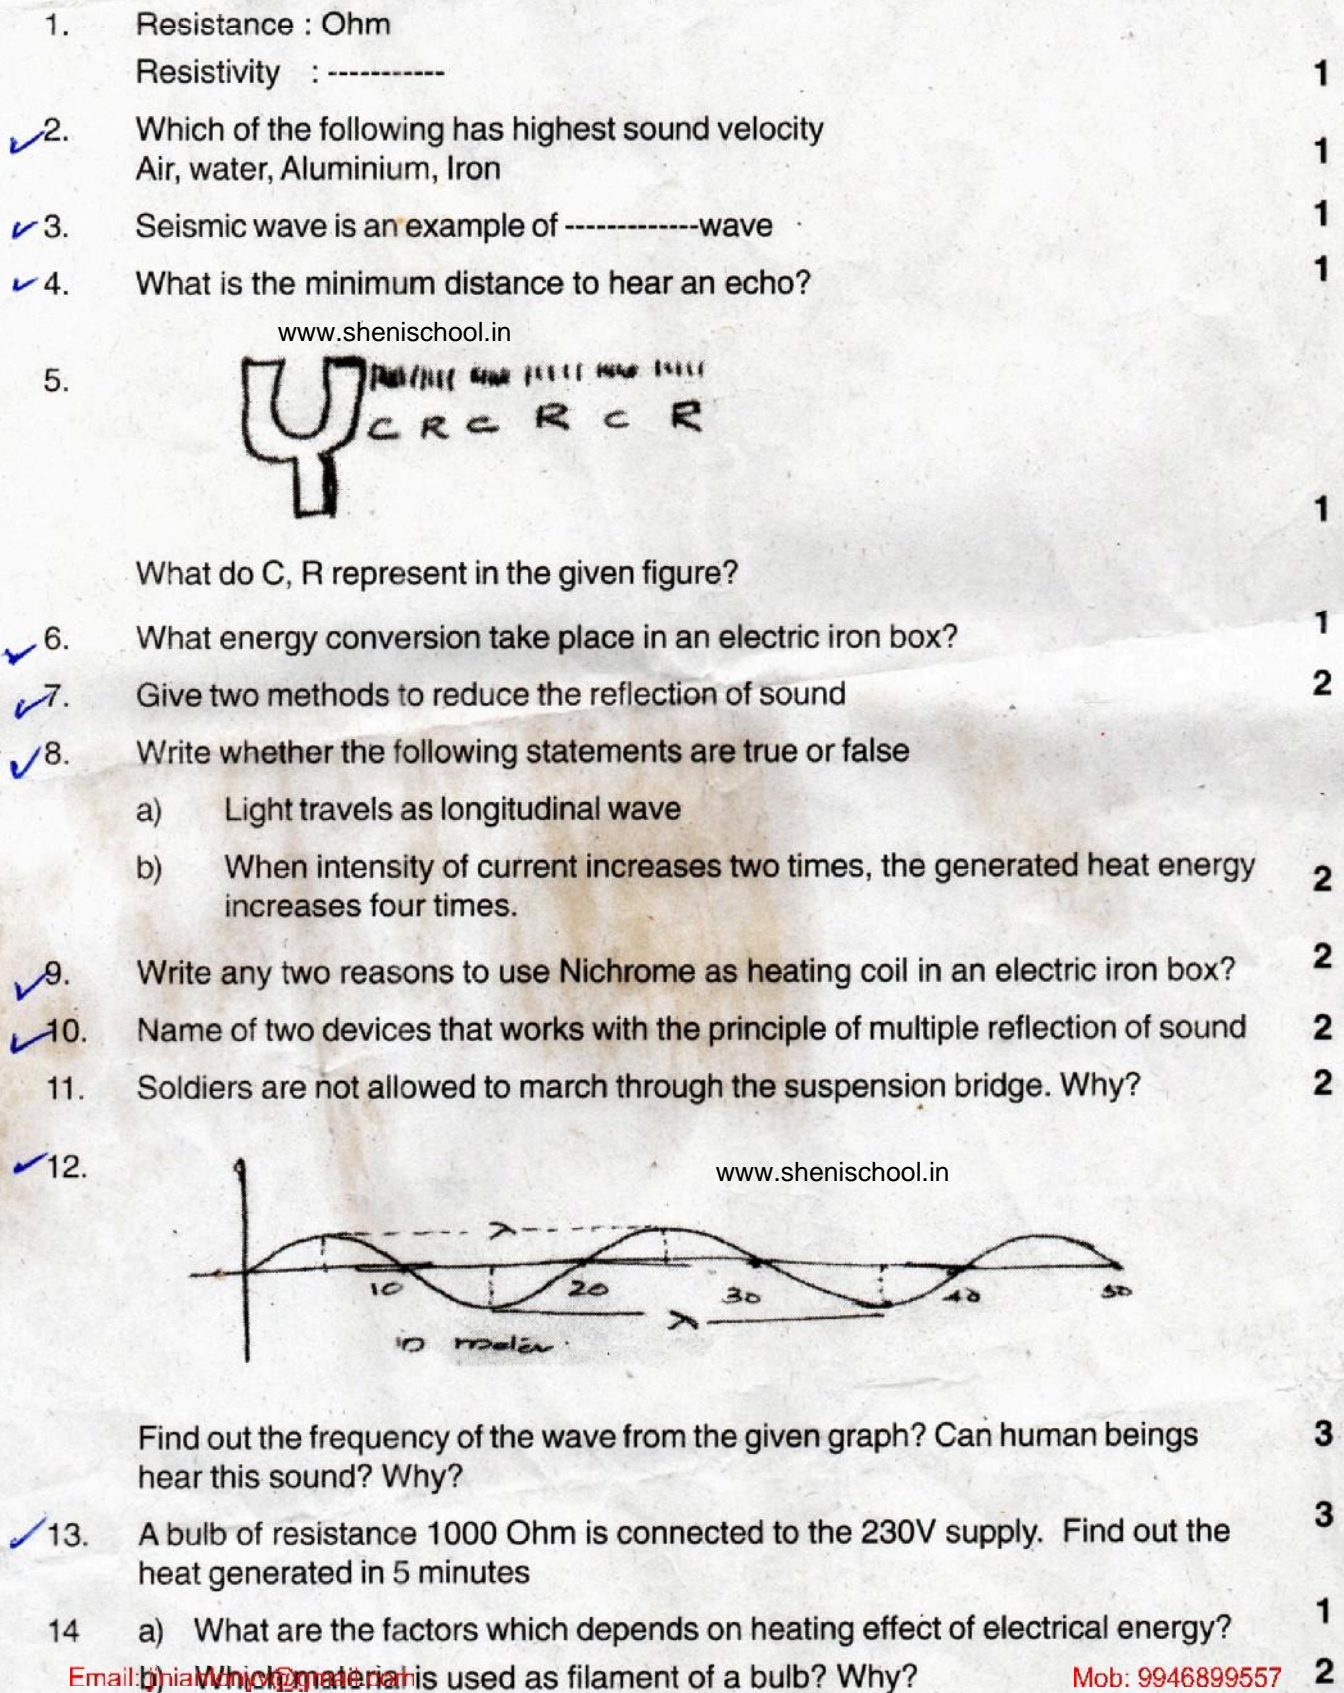 1. Resistance : Ohm
Resistivity : ----------- 1
2. Which of the following has highest sound velocity
Air, water, Aluminium, Iron 1
3. Seismic wave is an example of -------------wave 1
4. What is the minimum distance to hear an echo? 1
www.shenischool.in
5.
C R C R C R
1
What do C, R represent in the given figure?
6. What energy conversion take place in an electric iron box? 1
7. Give two methods to reduce the reflection of sound 2
8. Write whether the following statements are true or false
a) Light travels as longitudinal wave
b) When intensity of current increases two times, the generated heat energy
increases four times. 2
9. Write any two reasons to use Nichrome as heating coil in an electric iron box? 2
10. Name of two devices that works with the principle of multiple reflection of sound 2
11. Soldiers are not allowed to march through the suspension bridge. Why? 2
12.
www.shenischool.in
λ
10 20 30 40 50
λ
in meter
Find out the frequency of the wave from the given graph? Can human beings 3
hear this sound? Why?
13. A bulb of resistance 1000 Ohm is connected to the 230V supply. Find out the 3
heat generated in 5 minutes
14 a) What are the factors which depends on heating effect of electrical energy? 1
b) Which material is used as filament of a bulb? Why? 2
Email: Mob: 9946899557